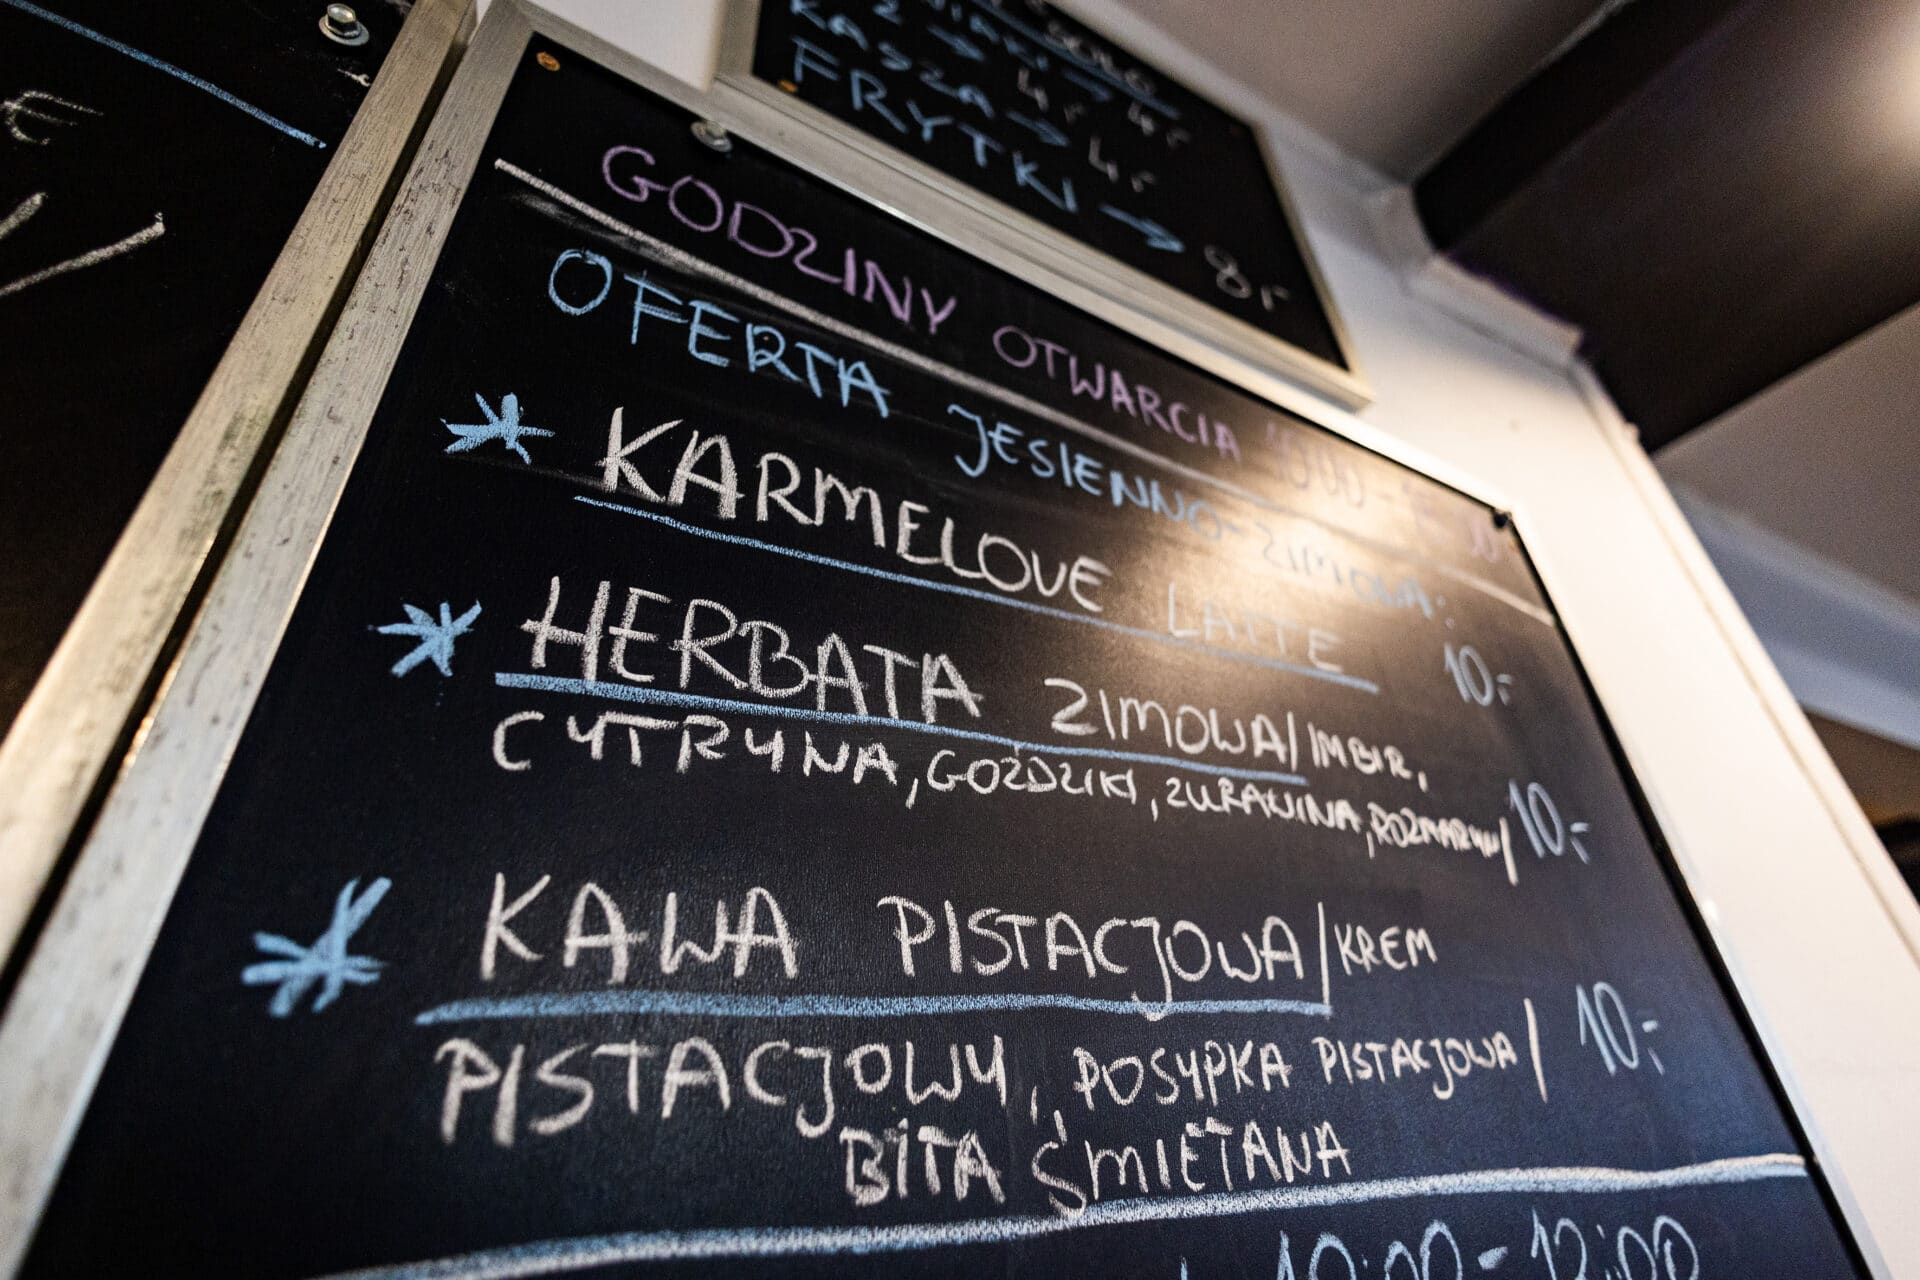 KASZA → 4,-
FRYTKI → 8,-
GODZINY OTWARCIA
OFERTA JESIENNO-ZIMOWA:
KARMELOVE LATTE 10,-
HERBATA ZIMOWA/IMBIR,
CYTRYNA, GOŹDZIKI, ŻURAWINA, ROZMARYN/ 10,-
KAWA PISTACJOWA/KREM
PISTACJOWY, POSYPKA PISTACJOWA/ 10,-
BITA ŚMIETANA
10:00-12:00